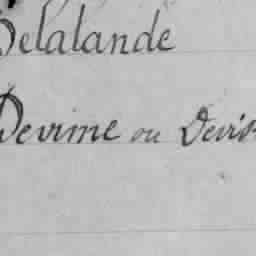 Delalande
Devime ou Devis